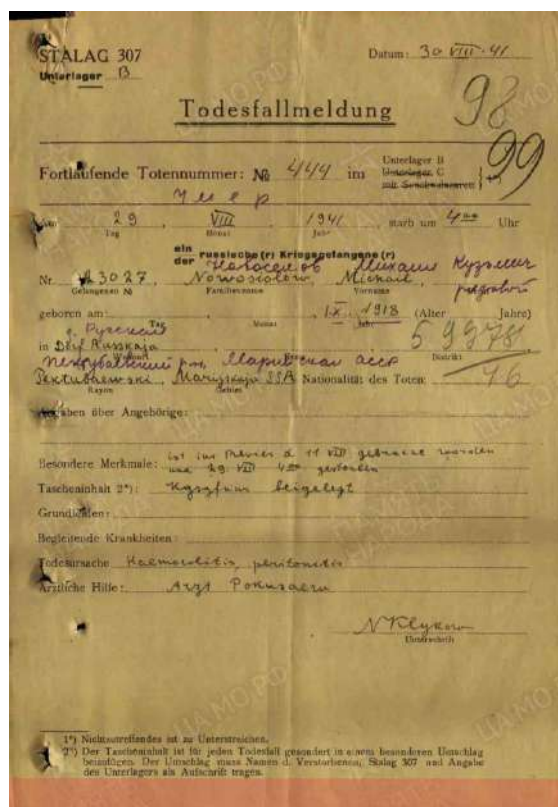 STALAG 307
Datum: 30 VIII. 41
Unterlager B
Todesfallmeldung
98
99
Fortlaufende Totennummer: № 444 im
Unterlager B
Unterlager C
mit
Умер
29, VIII, 1941, starb um 4 00 Uhr
Tag Monat Jahr
ein
der russische(r) Kriegsgefangene(r)
Новоселов Михаил Кузьмич
Nr. 23027, Nowosiolow, Michail, рядовой
Gefangenen № Familienname Vorname
geboren am: , , IX. 1918 (Alter Jahre)
Tag Monat Jahr
д. Русская
59978
in Dorf Russkaja
Wohnort Distrikt
р-н, Марийская асср
46
Marijskaja SSA Nationalität des Toten:
Rayon Gebiet
Angaben über Angehörige:
Besondere Merkmale: ist ins Revier d. 11 VIII gebracht worden
und 29. VIII 4 00 gestorben
Tascheninhalt 2*): beigelegt
Grundleiden:
Begleitende Krankheiten:
Todesursache Haemocolitis, peritonitis
Ärztliche Hilfe: Arzt
N Klykow
Unterschrift
1*) Nichtzutreffendes ist zu Unterstreichen.
2*) Der Tascheninhalt ist für jeden Todesfall gesondert in einem besonderen Umschlag
beizufügen. Der Umschlag muss Namen d. Verstorbenen, Stalag 307 und Angabe
des Unterlagers als Aufschrift tragen.
ЦАМО.РФ
ПАМЯТЬ НАРОДА